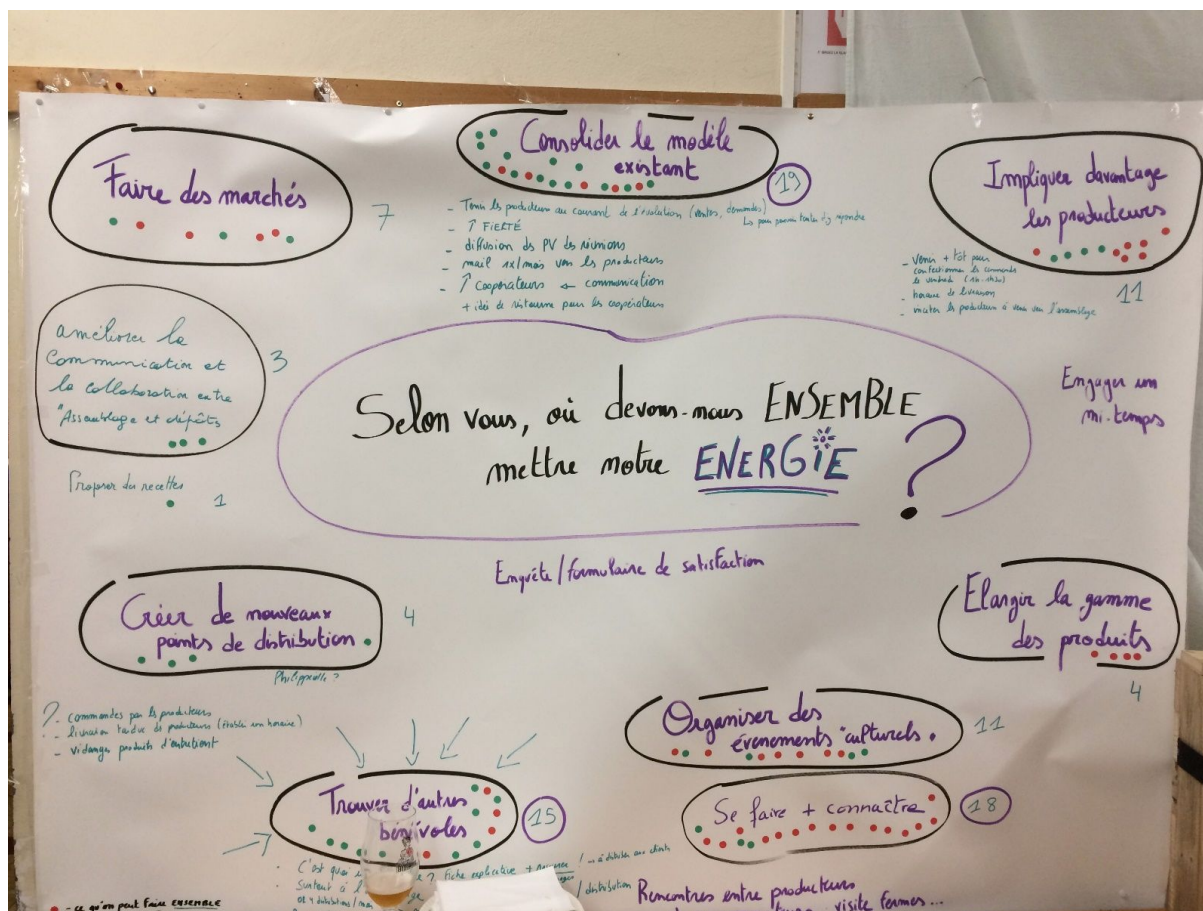 Faire des marchés
7
Consolider le modèle
existant
19
- Tenir les producteurs au courant de l'évolution (ventes, demandes)
- ↑ FIERTÉ
- diffusion des PV des réunions
- mail 1x/mois vers les producteurs
- ↑ coopérateurs ← communication
+ idée de ristourne pour les coopérateurs
Impliquer davantage
les producteurs
11
- venir + tôt pour
confectionner les commandes
le vendredi
- horaire de livraison
- inviter les producteurs à venir voir l'assemblage
améliorer la
communication et
la collaboration entre
"Assemblage et dépôts
3
Proposer des recettes
1
Selon vous, où devons-nous ENSEMBLE
mettre notre ENERGIE ?
Engager un
mi-temps
Enquête/formulaire de satisfaction
Créer de nouveaux
points de distribution
4
Philippeville ?
? - commandes par les producteurs
- livraison tardive de producteurs (établir un horaire)
- vidanges produits d'entretient
Elargir la gamme
des produits
4
Organiser des
évenements "culturels"
11
Trouver d'autres
bénévoles
15
Se faire + connaître
18
C'est quoi
? Fiche explicative +
! → à distribuer aux clients
Surtout à l'
/ distribution
Rencontres entre producteurs
visite fermes...
• - ce qu'on peut faire ENSEMBLE